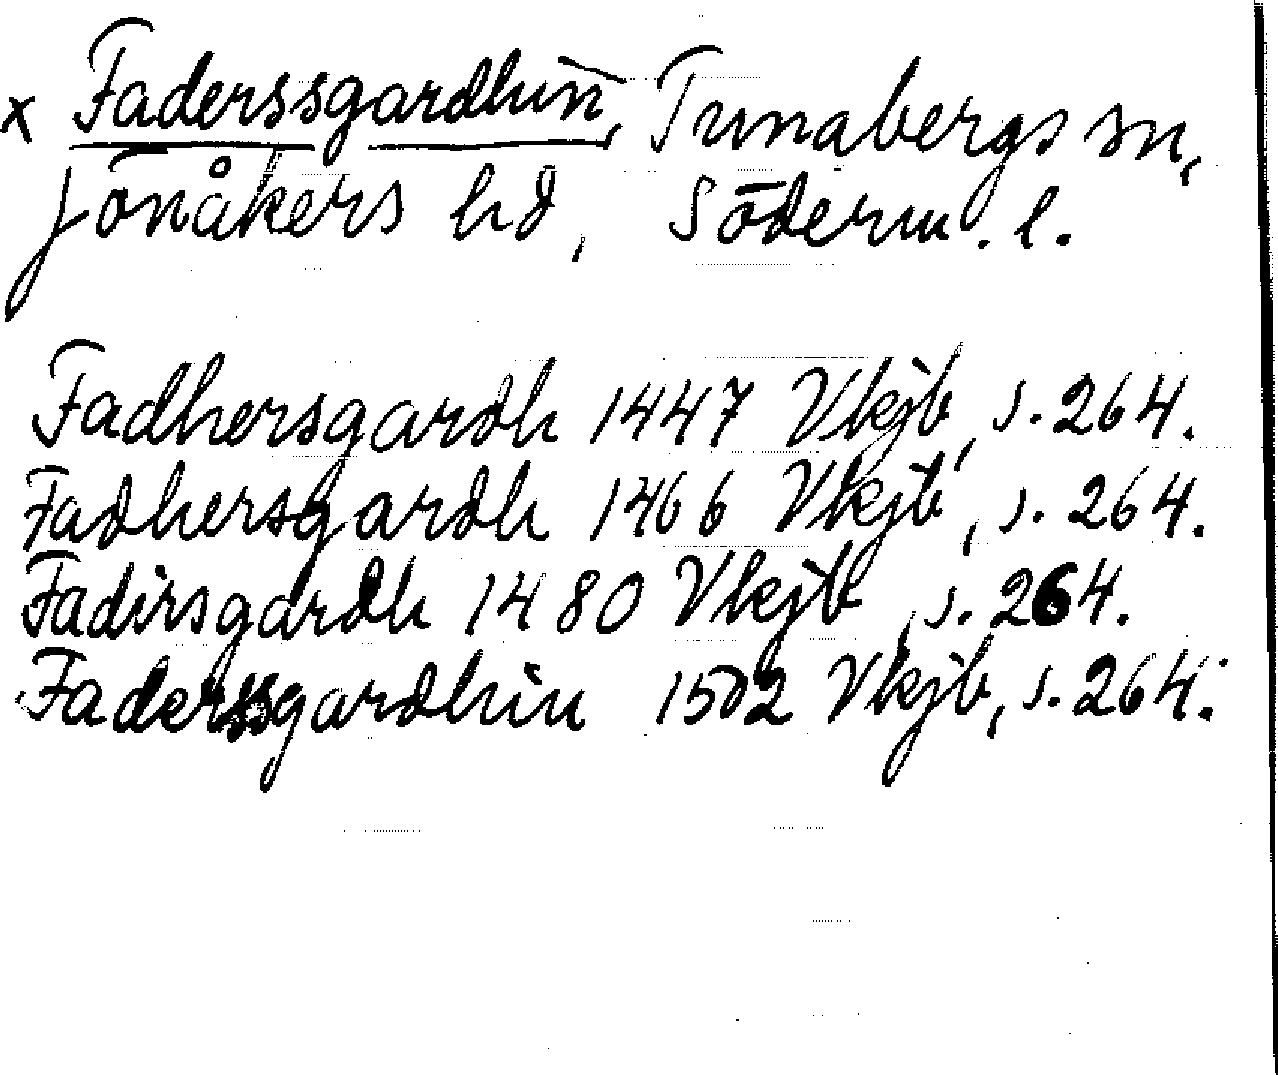 x Faderssgardhin, Tunabergs sn,
Jönåkers hd, Söderm. l.
Fadhersgardh 1447 Vkjb, s. 264.
Fadhersgardh 1466 Vkjb, s. 264.
Fadirsgardh 1480 Vkjb, s. 264.
Faderssgardhin 1502 Vkjb, s. 264.